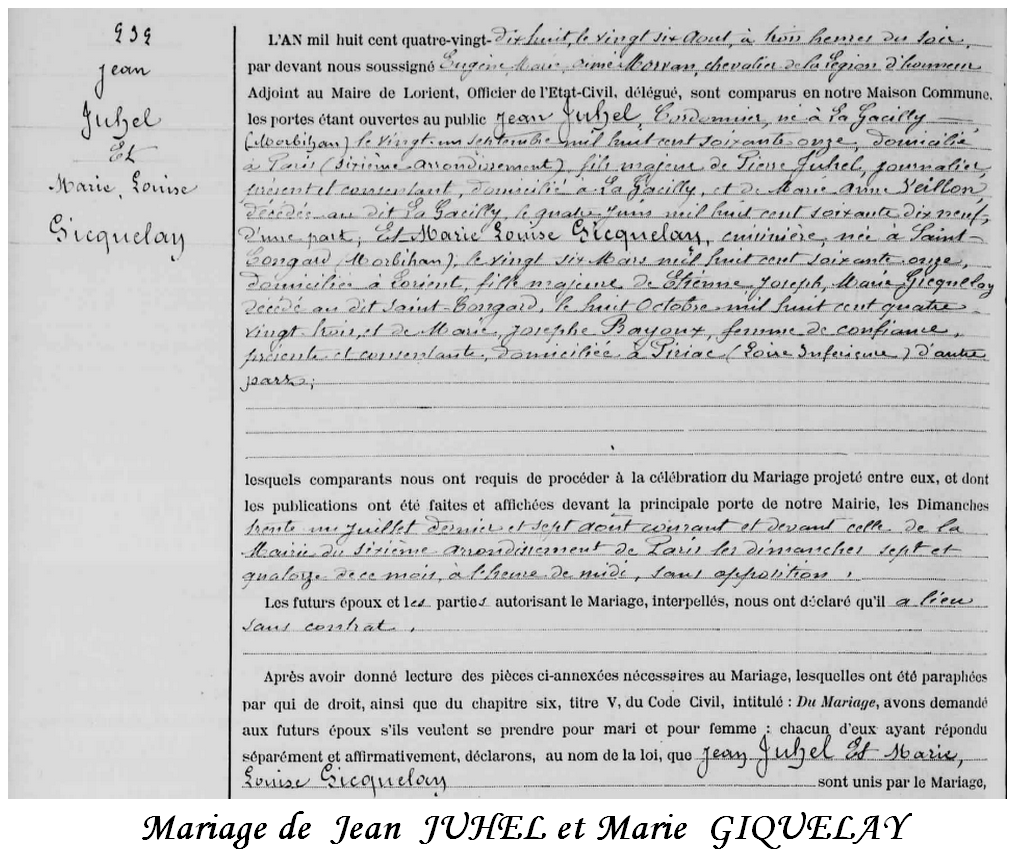 232
Jean
Juhel
Et
Marie, Louise
Gicquelay
L'AN mil huit cent quatre-vingt-dix huit, le vingt six Aout, à trois heures du soir,
par devant nous soussigné Eugène, Marie, Aimé Morvan, chevalier de la Légion d'honneur
Adjoint au Maire de Lorient, Officier de l'Etat-Civil, délégué, sont comparus en notre Maison Commune,
les portes étant ouvertes au public Jean Juhel, Cordonnier, né à La Gacilly
(Morbihan) le vingt-un septembre mil huit cent soixante-onze, domicilié
à Paris (sixième arrondissement), fils majeur de Pierre Juhel, journalier,
présent et consentant, domicilié à La Gacilly, et de Marie Anne Veillon,
décédée au dit La Gacilly, le quatre Juin mil huit cent soixante dix neuf,
d'une part; Et Marie Louise Gicquelay, cuisinière, née à Saint-
Congard (Morbihan), le vingt six Mars mil huit cent soixante onze,
domiciliée à Lorient, fille majeure de Etienne, Joseph, Marie Gicquelay
décédé au dit Saint-Congard, le huit Octobre mil huit cent quatre
vingt trois, et de Marie, Josephe Bayoux, femme de confiance,
présente et consentante, domiciliée à Piriac (Loire Inférieure) d'autre
part;
lesquels comparants nous ont requis de procéder à la célébration du Mariage projeté entre eux, et dont
les publications ont été faites et affichées devant la principale porte de notre Mairie, les Dimanches
trente un Juillet dernier et sept août courant et devant celle de la
Mairie du sixième arrondissement de Paris les dimanches sept et
quatorze de ce mois, à l'heure de midi, sans opposition.
Les futurs époux et les parties autorisant le Mariage, interpellés, nous ont déclaré qu'il a lieu
sans contrat.
Après avoir donné lecture des pièces ci-annexées nécessaires au Mariage, lesquelles ont été paraphées
par qui de droit, ainsi que du chapitre six, titre V, du Code Civil, intitulé : Du Mariage, avons demandé
aux futurs époux s'ils veulent se prendre pour mari et pour femme : chacun d'eux ayant répondu
séparément et affirmativement, déclarons, au nom de la loi, que Jean Juhel Et Marie,
Louise Gicquelay sont unis par le Mariage,
Mariage de Jean JUHEL et Marie GIQUELAY